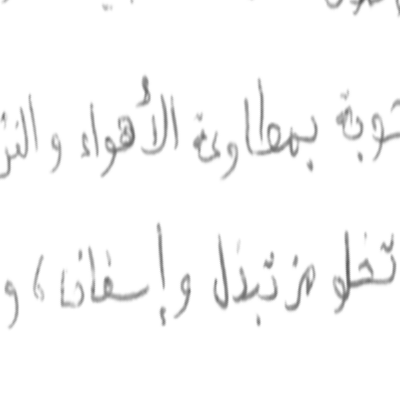 بمطاوعة الأهواء و
تخلو من تبذل وإسفاف، و